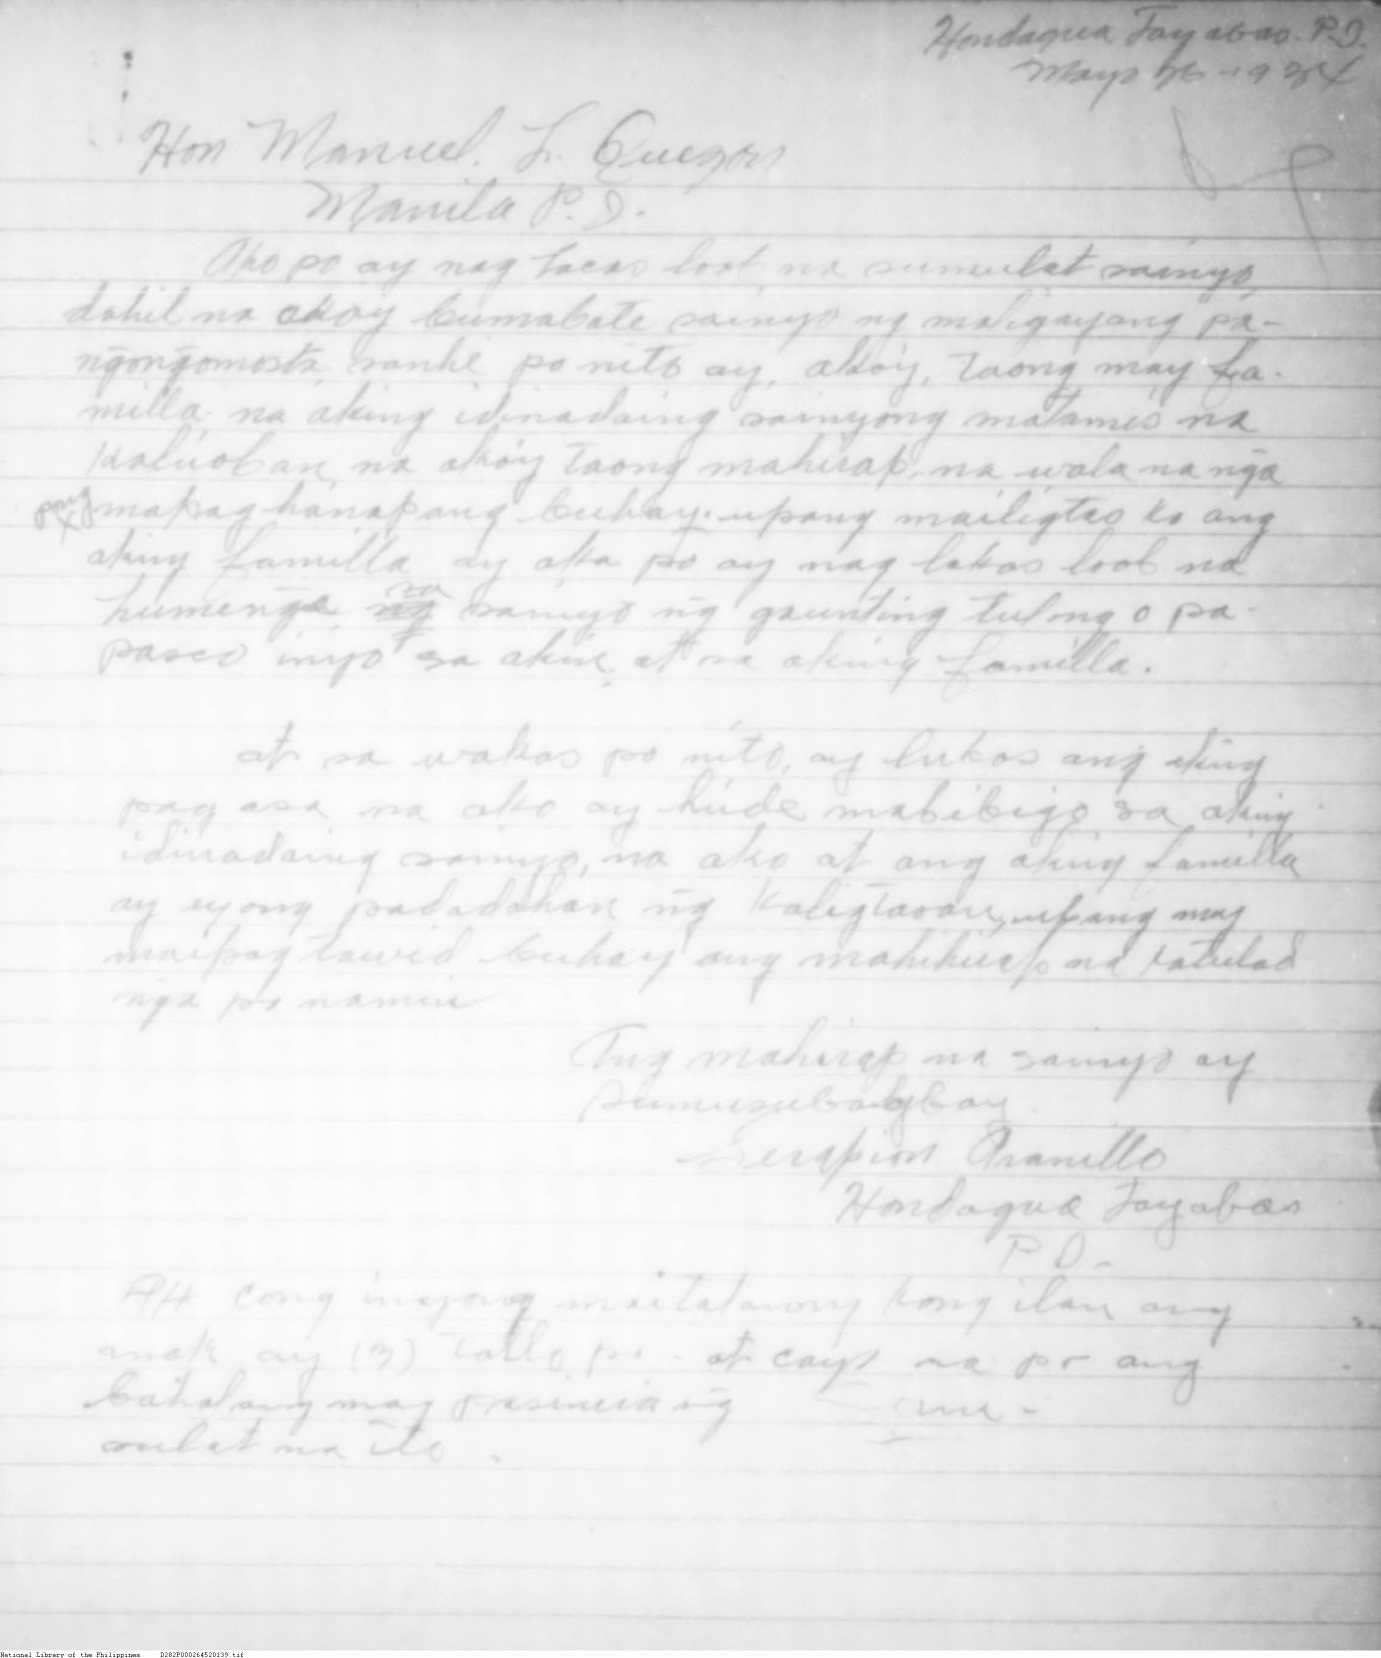 Hondagua Tayabas. P.I.
Mayo 26-1934
Hon Manuel. L. Quezon
Manila P. I.
Ako po ay nag lacas loob na sumulat sainyo,
dahil na akoy bumabate sainyo ng maligayang pa-
ngongomosta, sanhi po nito ay, akoy, taong may fa-
milla na aking idinadaing sainyong matamis na
kalúoban, na akoy taong mahirap, na wala na nga
pong mapag hanapang buhay. upang mailigtas ko ang
aking familla ay ako po ay nag lakas loob na
humenge, sa sainyo ng gaunting tulong o pa-
pasco inyo sa akin, at sa aking familla.
at sa wakas po nito, ay lubos ang aking
pag asa na ako ay hinde mabibigo sa aking
idinadaing sainyo, na ako at ang aking familla
ay iyong padadalhan ng kaligtasan, upang may
maipag tawid buhay ang mahihirap na katulad
nga po namin
Ang mahirap na sainyo ay
sumusubaybay
Serapion Aranillo
Hondagua Tayabas
P I.
At cong inyong maitatanong kong ilan ang
anak ay (3) tatlo po. at cayo na po ang
bahalang may pasencia ng
sulat na ito.
National Library of the Philippines D282P000264520139.tif